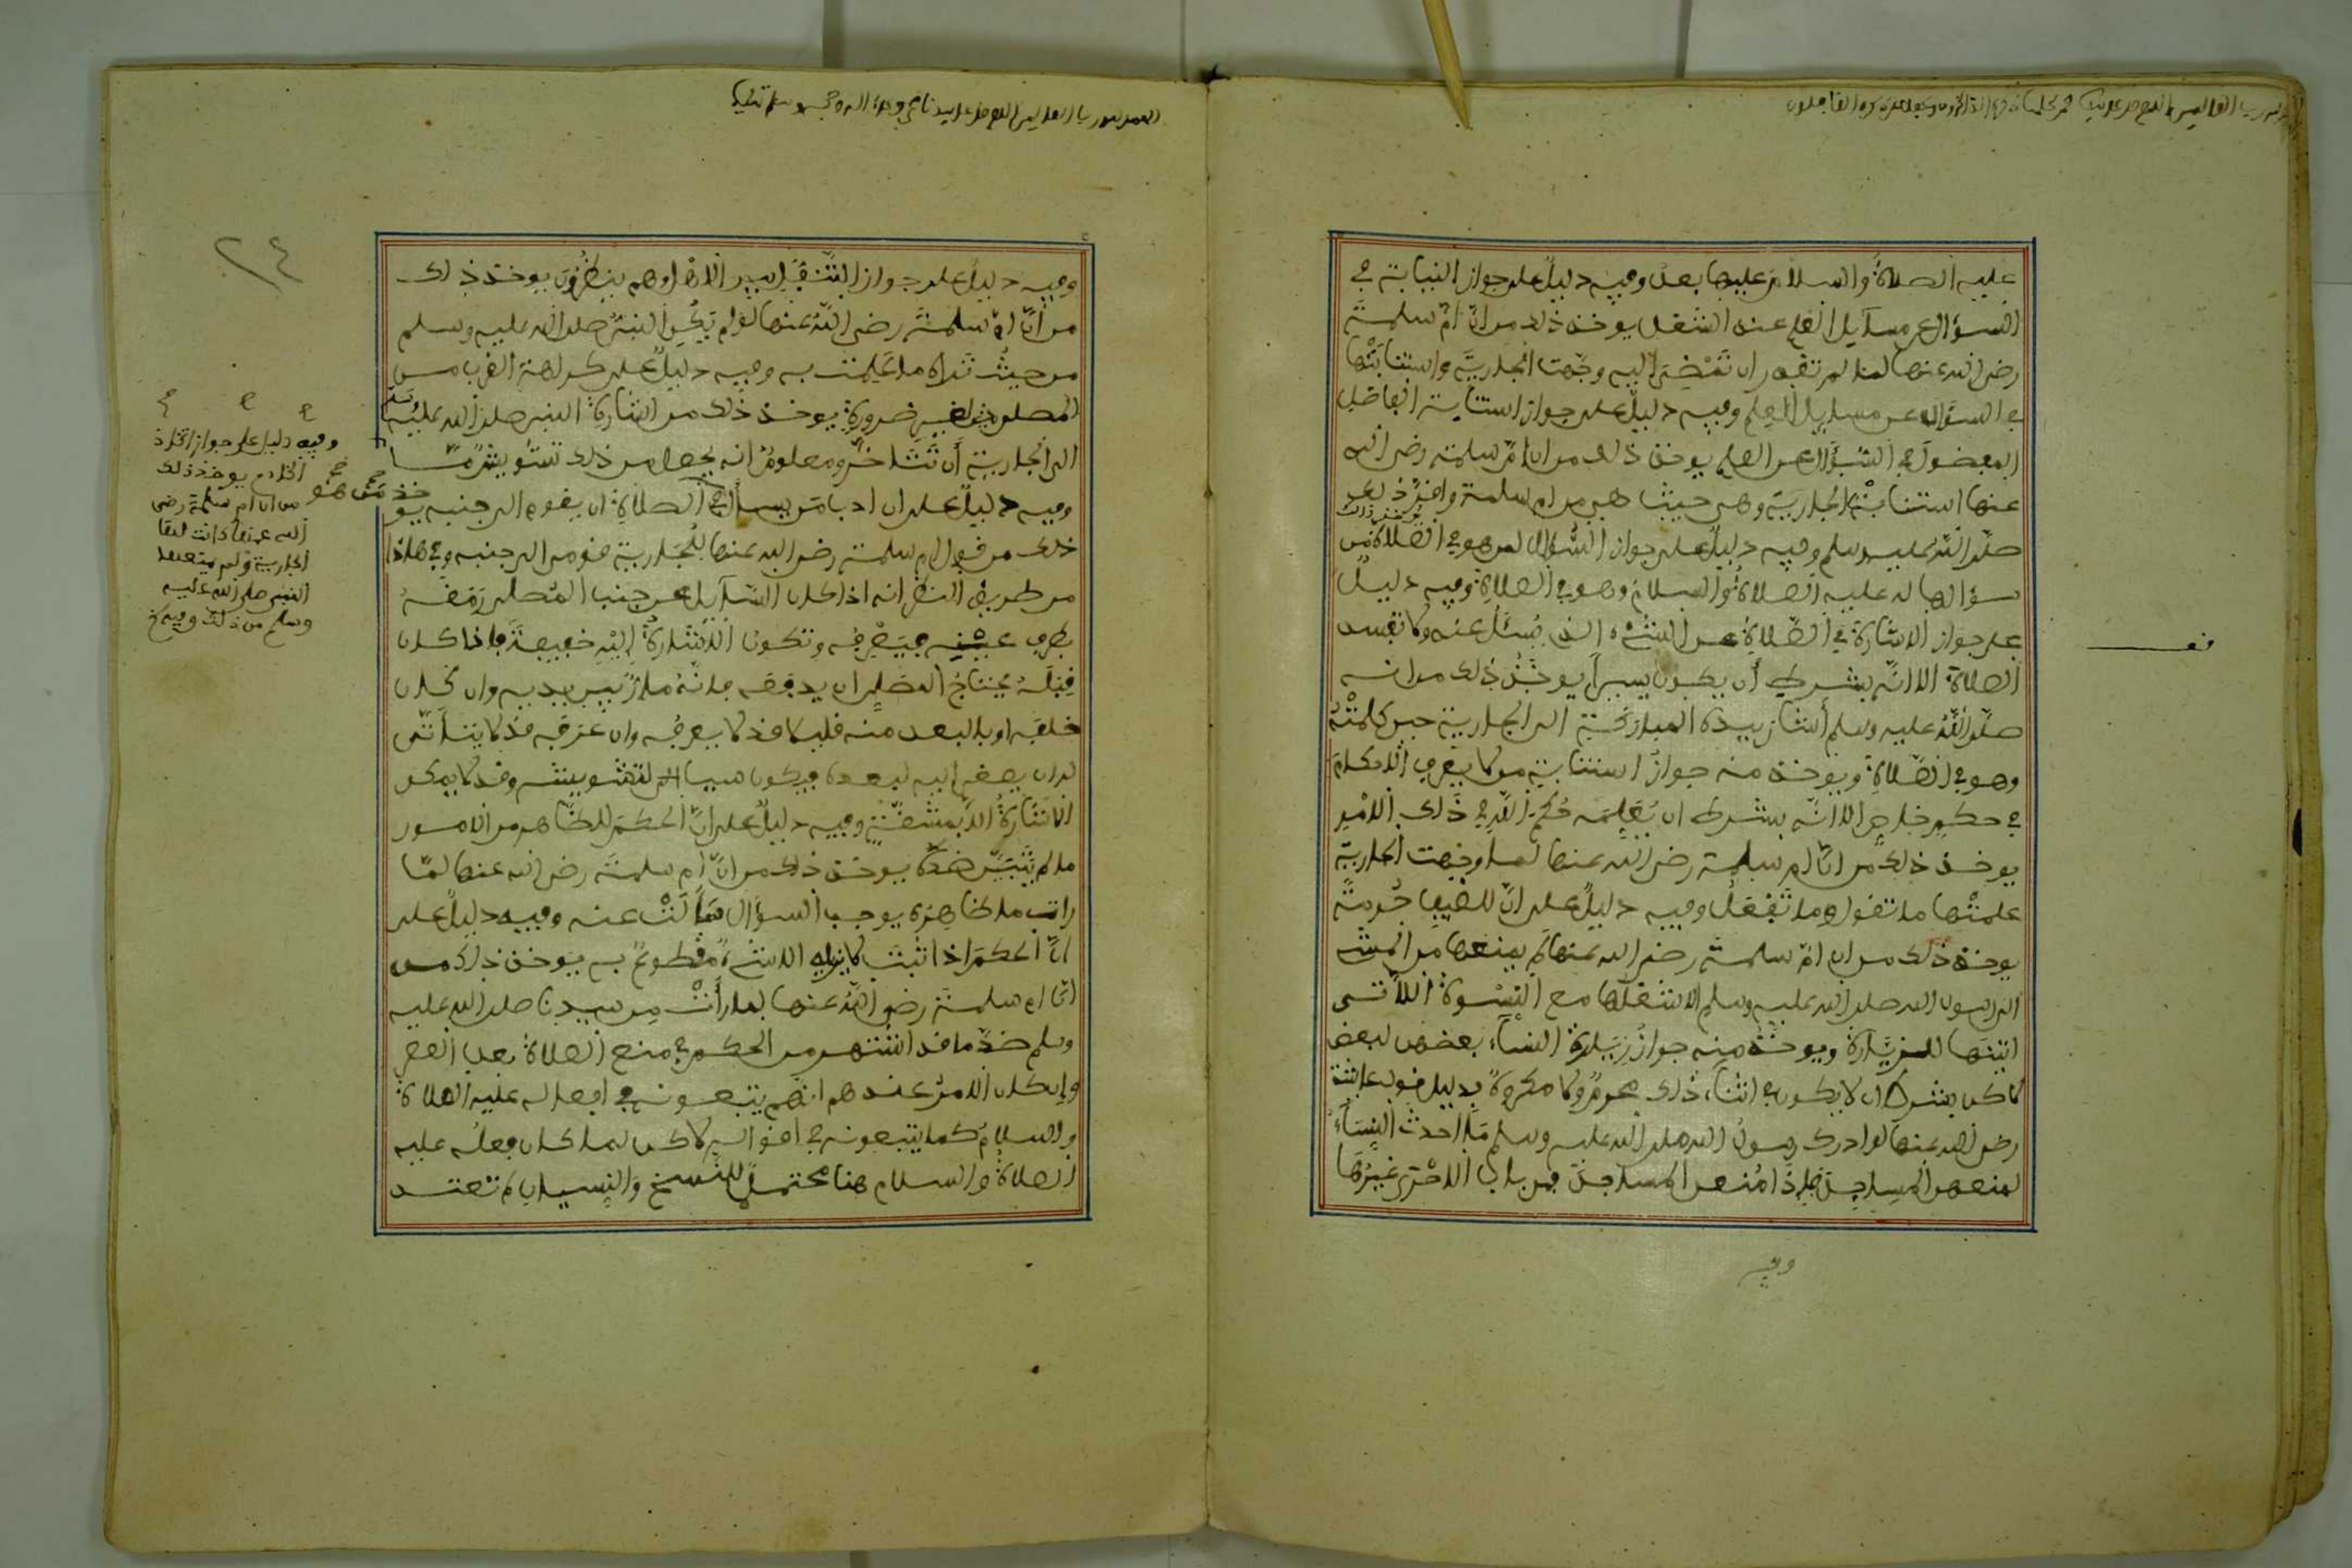 عليه الصلاة والسلام عليها بعد وفيه دليل على جواز النيابة في
السؤال عن مسائل العلم عند الشغل يوخذ ذلك من ان ام سلمة
رضي الله عنها لما لم تقدر ان تمضي اليه وجهت الجارية واستنابتها
في السؤال عن مسايل العلم وفيه دليل على جواز استنابة الفاضل
المفضول في السؤال عن العلم يوخذ ذلك من ان ام سلمة رضي الله
عنها استنابت الجارية وهي حيث هي من ام سلمة واقر ذلك
صلى الله عليه وسلم وفيه دليل على جواز السؤال لمن هو في الصلاة يوخذ ذلك من
سؤالها له عليه الصلاة والسلام وهو في الصلاة وفيه دليل
على جواز الاشارة في الصلاة عن الشيء الذي يسئل عنه ولا تفسد
الصلاة الا انه بشرط أن يكون يسيرا يوخذ ذلك من انه
صلى الله عليه وسلم أشار بيده المباركة الى الجارية حين كلمته
وهو في الصلاة ويوخذ منه جواز استنابة من لا يعرف الاحكام
في حكم خاص الا انه بشرط ان يعلمه حكم الله في ذلك الامر
يوخذ ذلك من ان ام سلمة رضي الله عنها لما وجهت الجارية
علمتها ما تقول وما تفعل وفيه دليل على ان للضيف حرمة
يوخذ ذلك من ان ام سلمة رضي الله عنها لم يمنعها من المشي
الى رسول الله صلى الله عليه وسلم الا شغلها مع النسوة اللاتي
اتينها للزيارة ويوخذ منه جواز زيارة النساء بعضهن لبعض
لاكن بشرط ان لا يكون في اثناء ذلك محرم ولا مكروه بدليل قول عائشة
رضي الله عنها لو ادرك رسول الله صلى الله عليه وسلم ما احدث النساء
لمنعهن المساجد فإذا منعن المساجد فمن باب الاحرى غيرها
وفيه
وفيه دليل على جواز التنفل بين الاهل وهم ينظرون يوخذ ذلك
من ان ام سلمة رضي الله عنها لو لم يكن النبي صلى الله عليه وسلم
من حيث تراه ما علمت به وفيه دليل على كراهة القرب من
المصلي لغير ضرورة يوخذ ذلك من اشارة النبي صلى الله عليه وسلم
الى الجارية أن تتأخر ومعلوم انه يحصل من ذلك تشويش ما
وفيه دليل على ان ادب من يسأل في الصلاة ان يقوم الى جنبه يو
خذ ذلك من قول ام سلمة رضي الله عنها للجارية قومي الى جنبه وفي هاذا
من طريق النظر انه اذا كان السايل عن جنب المصلي رمقه
بطرف عينه فيعرفه وتكون الاشارة إليه خفيفة فاذا كان
قبله يحتاج المصلي ان يدفعه لانه مار بين يديه وان كان
خلفه او بالبعد منه فلا قد لا يعرفه وان عرفه قد لا يتأتى
له ان يصغي اليه لبعده فيكون سببا لتشويشه وقد لا يمكن
الاشارة الا بمشقة وفيه دليل على ان الحكم للظاهر من الامور
ما لم يتبين ضده يوخذ ذلك من ان ام سلمة رضي الله عنها لما
رأت ما ظاهره يوجب السؤال سألت عنه وفيه دليل على
ان الحكم اذا ثبت لا يزيله الا شيء مقطوع به يوخذ ذلك من
ان ام سلمة رضي الله عنها لما رأت من سيدنا صلى الله عليه
وسلم ضد ما قد اشتهر من الحكم في منع الصلاة بعد العصر
وان كان الامر عندهم انهم يتبعونه في افعاله عليه الصلاة
والسلام كما يتبعونه في اقواله لاكن لما كان فعله عليه
الصلاة والسلام هنا محتملا للنسخ والنسيان لم تعتد
٢٤
وفيه دليل على جواز اتخاذ
الخادم يوخذ ذلك
من ان ام سلمة رضي
الله عنها كانت لها
الجارية ولم يمنعها
النبي صلى الله عليه
وسلم من ذلك وفيه